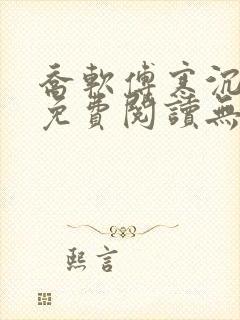 喬軟傅寒沉
免費閱讀無
熙言